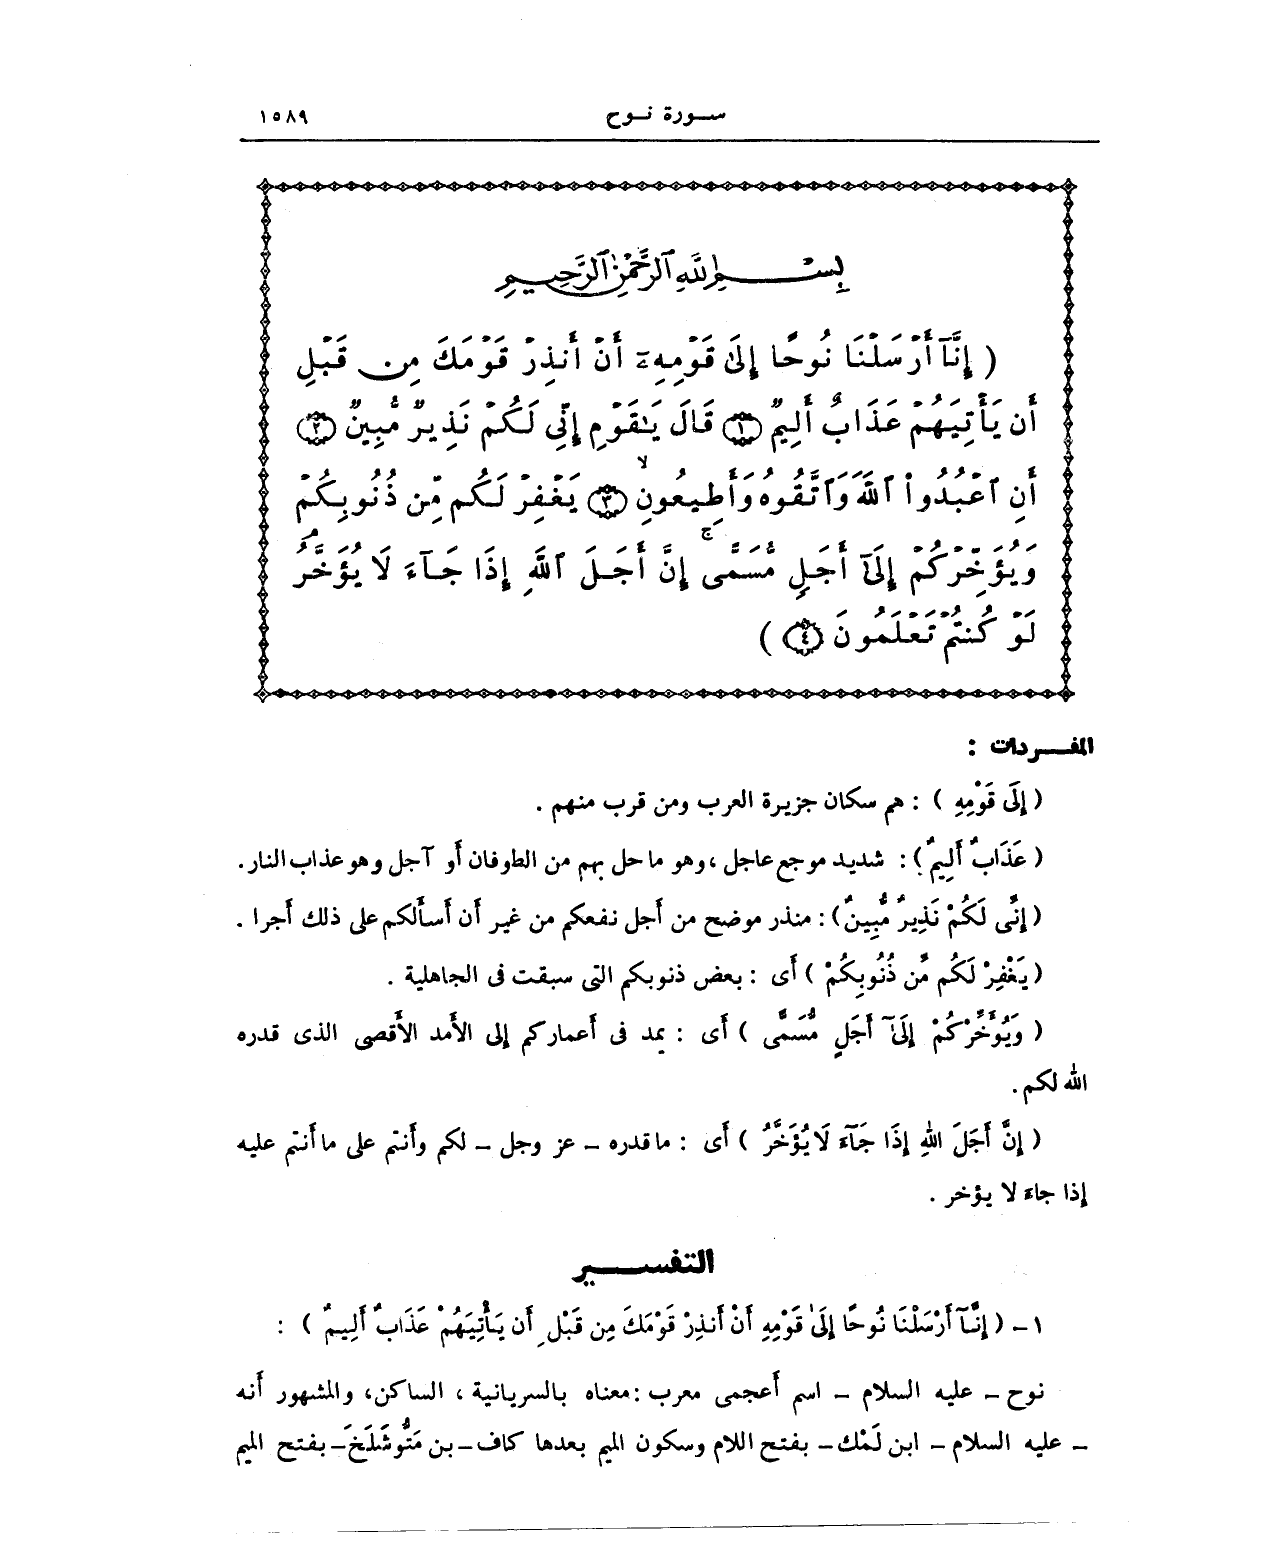 سورة نوح ١٥٨٩
بِسْمِ ٱللَّهِ ٱلرَّحْمَٰنِ ٱلرَّحِيمِ
( إِنَّآ أَرْسَلْنَا نُوحًا إِلَىٰ قَوْمِهِۦٓ أَنْ أَنذِرْ قَوْمَكَ مِن قَبْلِ
أَن يَأْتِيَهُمْ عَذَابٌ أَلِيمٌ ١ قَالَ يَٰقَوْمِ إِنِّى لَكُمْ نَذِيرٌ مُّبِينٌ ٢
أَنِ ٱعْبُدُوا۟ ٱللَّهَ وَٱتَّقُوهُ وَأَطِيعُونِ ٣ يَغْفِرْ لَكُم مِّن ذُنُوبِكُمْ
وَيُؤَخِّرْكُمْ إِلَىٰٓ أَجَلٍ مُّسَمًّى ۚ إِنَّ أَجَلَ ٱللَّهِ إِذَا جَآءَ لَا يُؤَخَّرُ ۖ
لَوْ كُنتُمْ تَعْلَمُونَ ٤ )
المفردات :
( إِلَى قَوْمِهِ ) : هم سكان جزيرة العرب ومن قرب منهم .
( عَذَابٌ أَلِيمٌ ) : شديد موجع عاجل ، وهو ما حل بهم من الطوفان أو آجل وهو عذاب النار .
( إِنِّى لَكُمْ نَذِيرٌ مُّبِينٌ ) : منذر موضح من أجل نفعكم من غير أن أسألكم على ذلك أجرا .
( يَغْفِرْ لَكُم مِّن ذُنُوبِكُمْ ) أى : بعض ذنوبكم التى سبقت فى الجاهلية .
( وَيُؤَخِّرْكُمْ إِلَىٰٓ أَجَلٍ مُّسَمًّى ) أى : يمد فى أعماركم إلى الأمد الأقصى الذى قدره
الله لكم .
( إِنَّ أَجَلَ اللهِ إِذَا جَآءَ لَا يُؤَخَّرُ ) أى : ما قدره – عز وجل – لكم وأنتم على ما أنتم عليه
إذا جاء لا يؤخر .
التفسير
١ – ( إِنَّآ أَرْسَلْنَا نُوحًا إِلَىٰ قَوْمِهِ أَنْ أَنذِرْ قَوْمَكَ مِن قَبْلِ أَن يَأْتِيَهُمْ عَذَابٌ أَلِيمٌ ) :
نوح – عليه السلام – اسم أعجمى معرب : معناه بالسريانية ، الساكن ، والمشهور أنه
– عليه السلام – ابن لَمْك – بفتح اللام وسكون الميم بعدها كاف – بن مَتُّوشَلَخَ – بفتح الميم